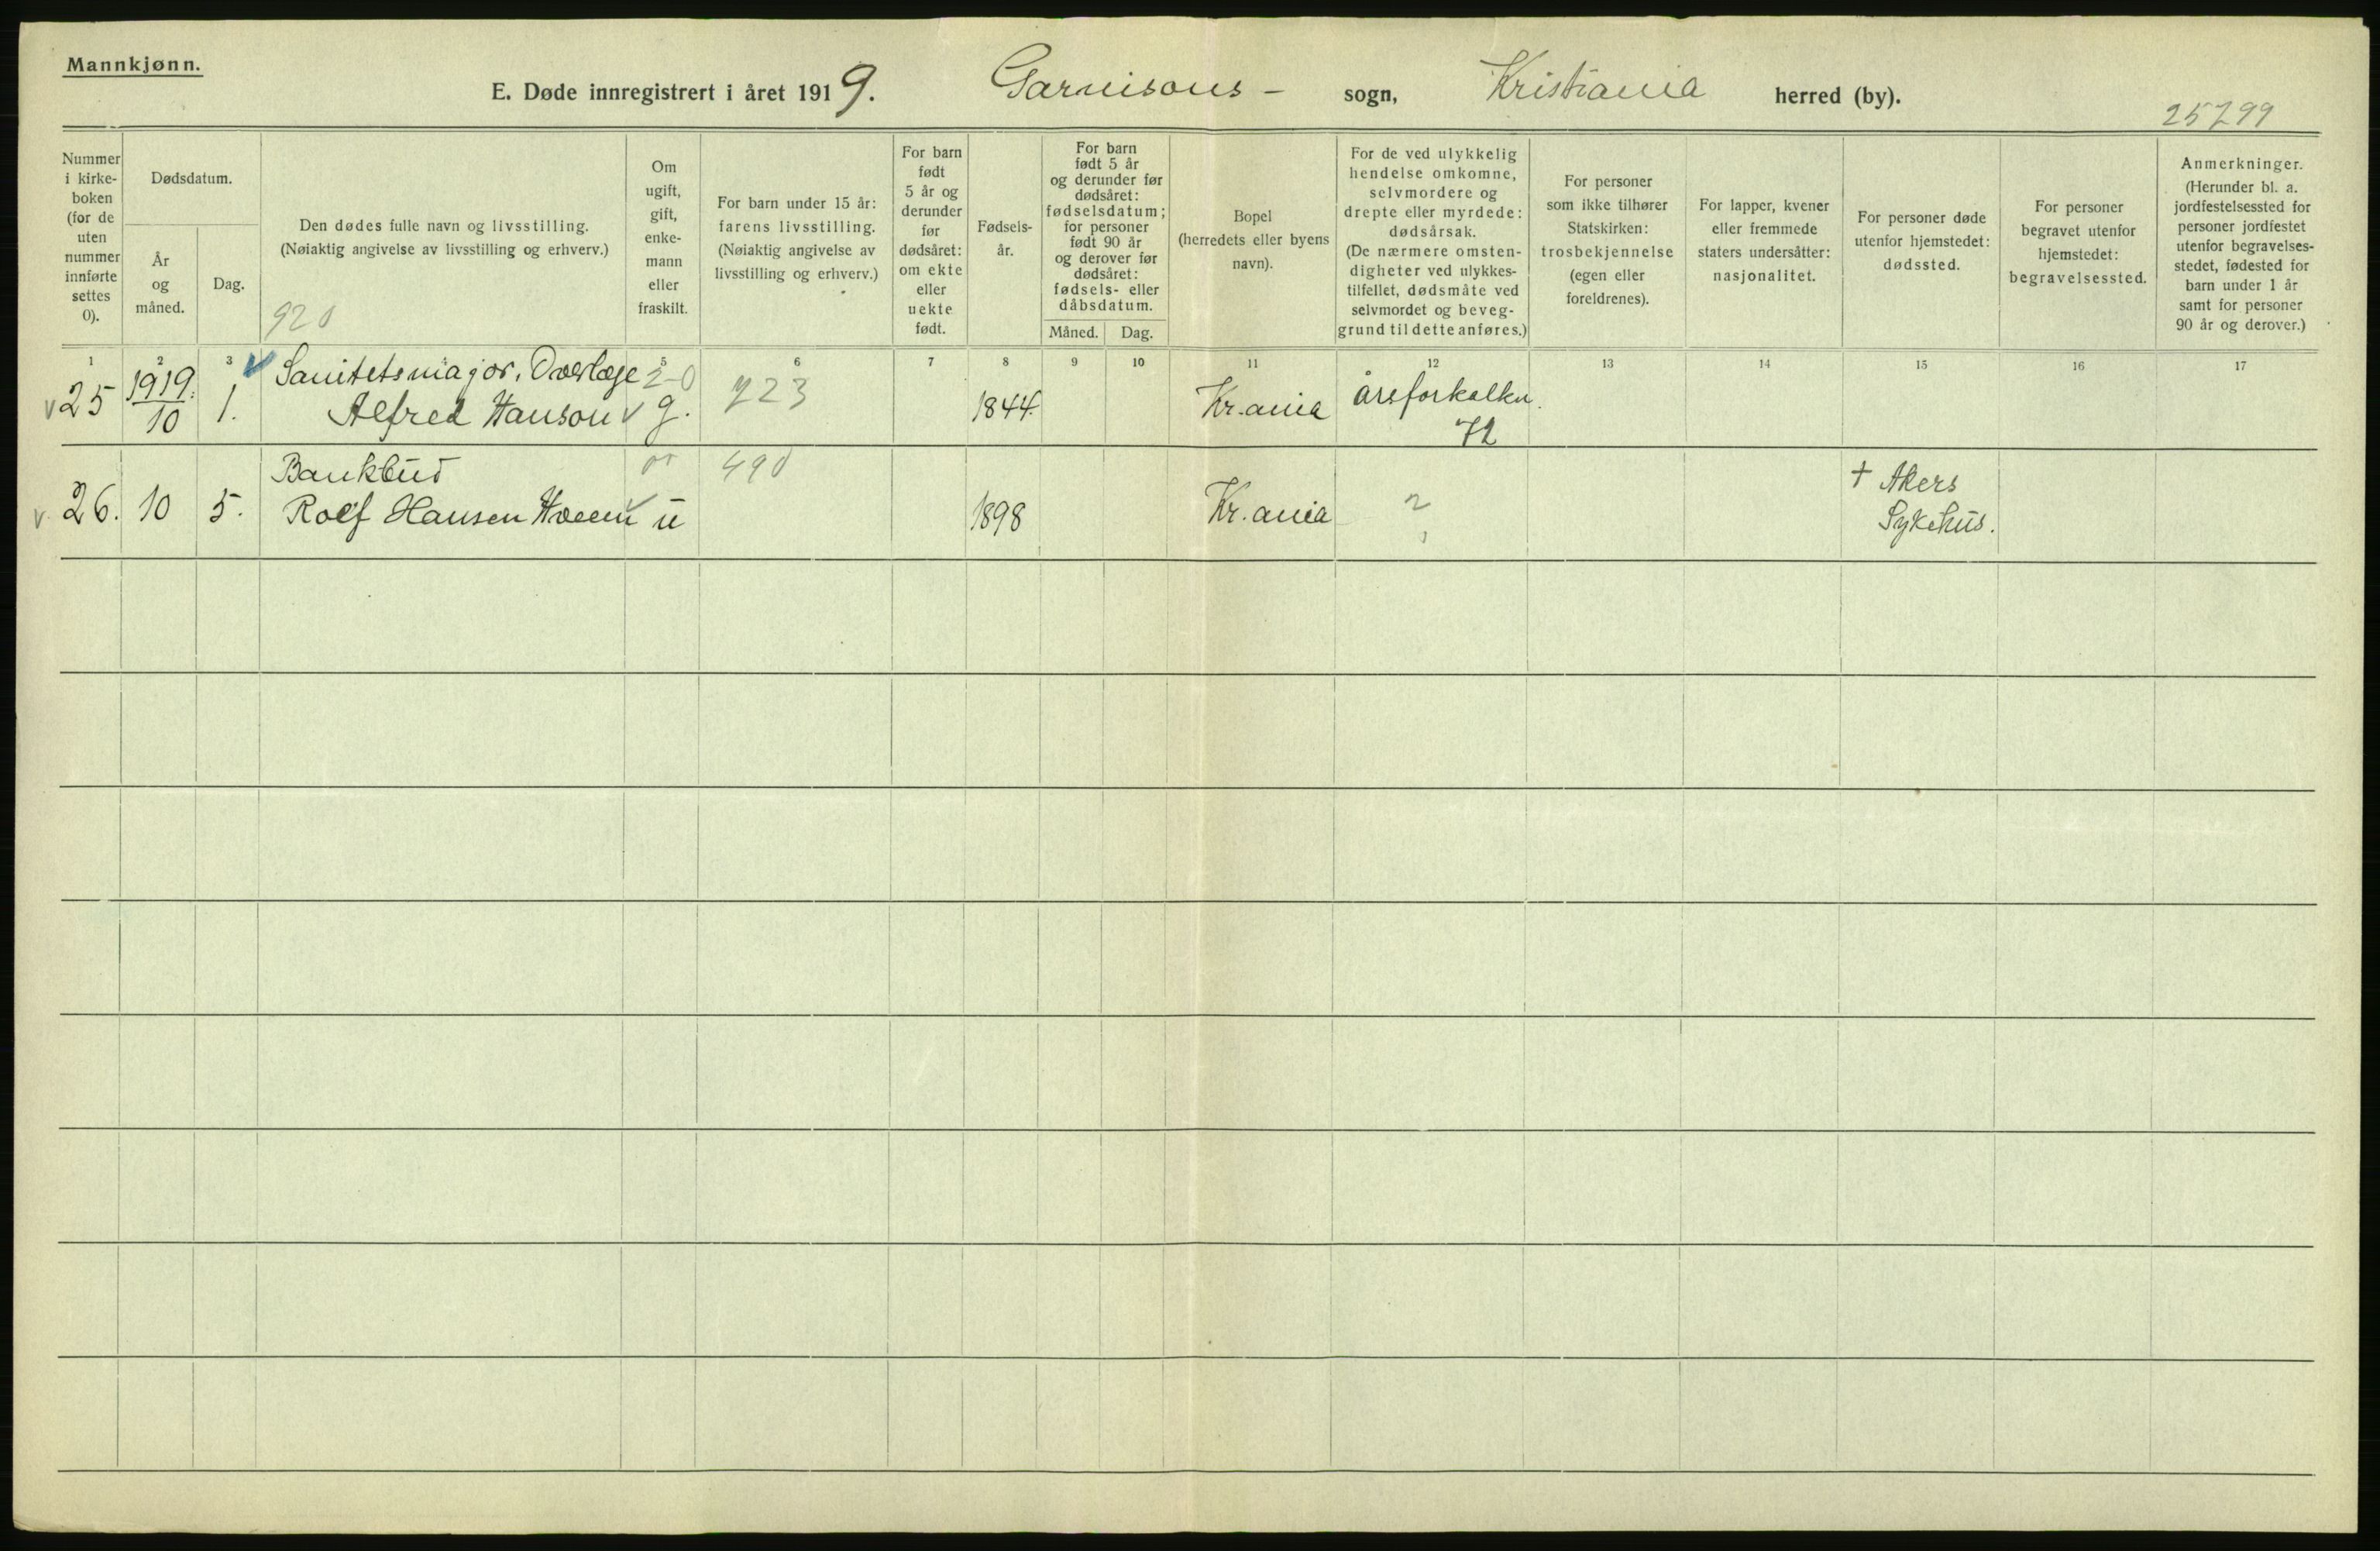 Mannkjønn.
E. Døde innregistrert i året 1919. Garnisons- sogn, Kristiania herred (by).
25799
Nummer i kirkeboken (for de uten nummer innførte settes 0).
Dødsdatum.
År og måned.
Dag.
Den dødes fulle navn og livsstilling.
(Nøiaktig angivelse av livsstilling og erhverv.)
920
Om ugift, gift, enkemann eller fraskilt.
For barn under 15 år: farens livsstilling.
(Nøiaktig angivelse av livsstilling og erhverv.)
For barn født 5 år og derunder før dødsåret: om ekte eller uekte født.
Fødselsår.
For barn født 5 år og derunder før dødsåret: fødselsdatum; for personer født 90 år og derover før dødsåret: fødsels- eller dåbsdatum.
Måned. Dag.
Bopel
(herredets eller byens navn).
For de ved ulykkelig hendelse omkomne, selvmordere og drepte eller myrdede: dødsårsak.
(De nærmere omstendigheter ved ulykkestilfellet, dødsmåte ved selvmordet og beveggrund til dette anføres.)
For personer som ikke tilhører Statskirken: trosbekjennelse (egen eller foreldrenes).
For lapper, kvener eller fremmede staters undersåtter: nasjonalitet.
For personer døde utenfor hjemstedet: dødssted.
For personer begravet utenfor hjemstedet: begravelsessted.
Anmerkninger.
(Herunder bl. a. jordfestelsessted for personer jordfestet utenfor begravelsesstedet, fødested for barn under 1 år samt for personer 90 år og derover.)
1 2 3 5 6 7 8 9 10 11 12 13 14 15 16 17
Sanitetsmajor, Overlæge 2-0
25 1919. 10 1. Alfred Hanson g. 723 1844. Kr.ania åreforkalkn.
Bankbud 490
26. 10 5. Rolf Hansen u 1898 Kr.ania ? † Akers
Sykehus.